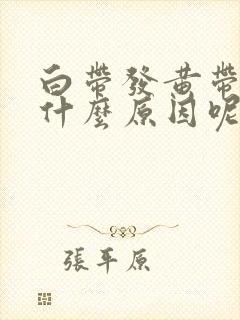 白帶發黃帶
什麼原因呢
張平原